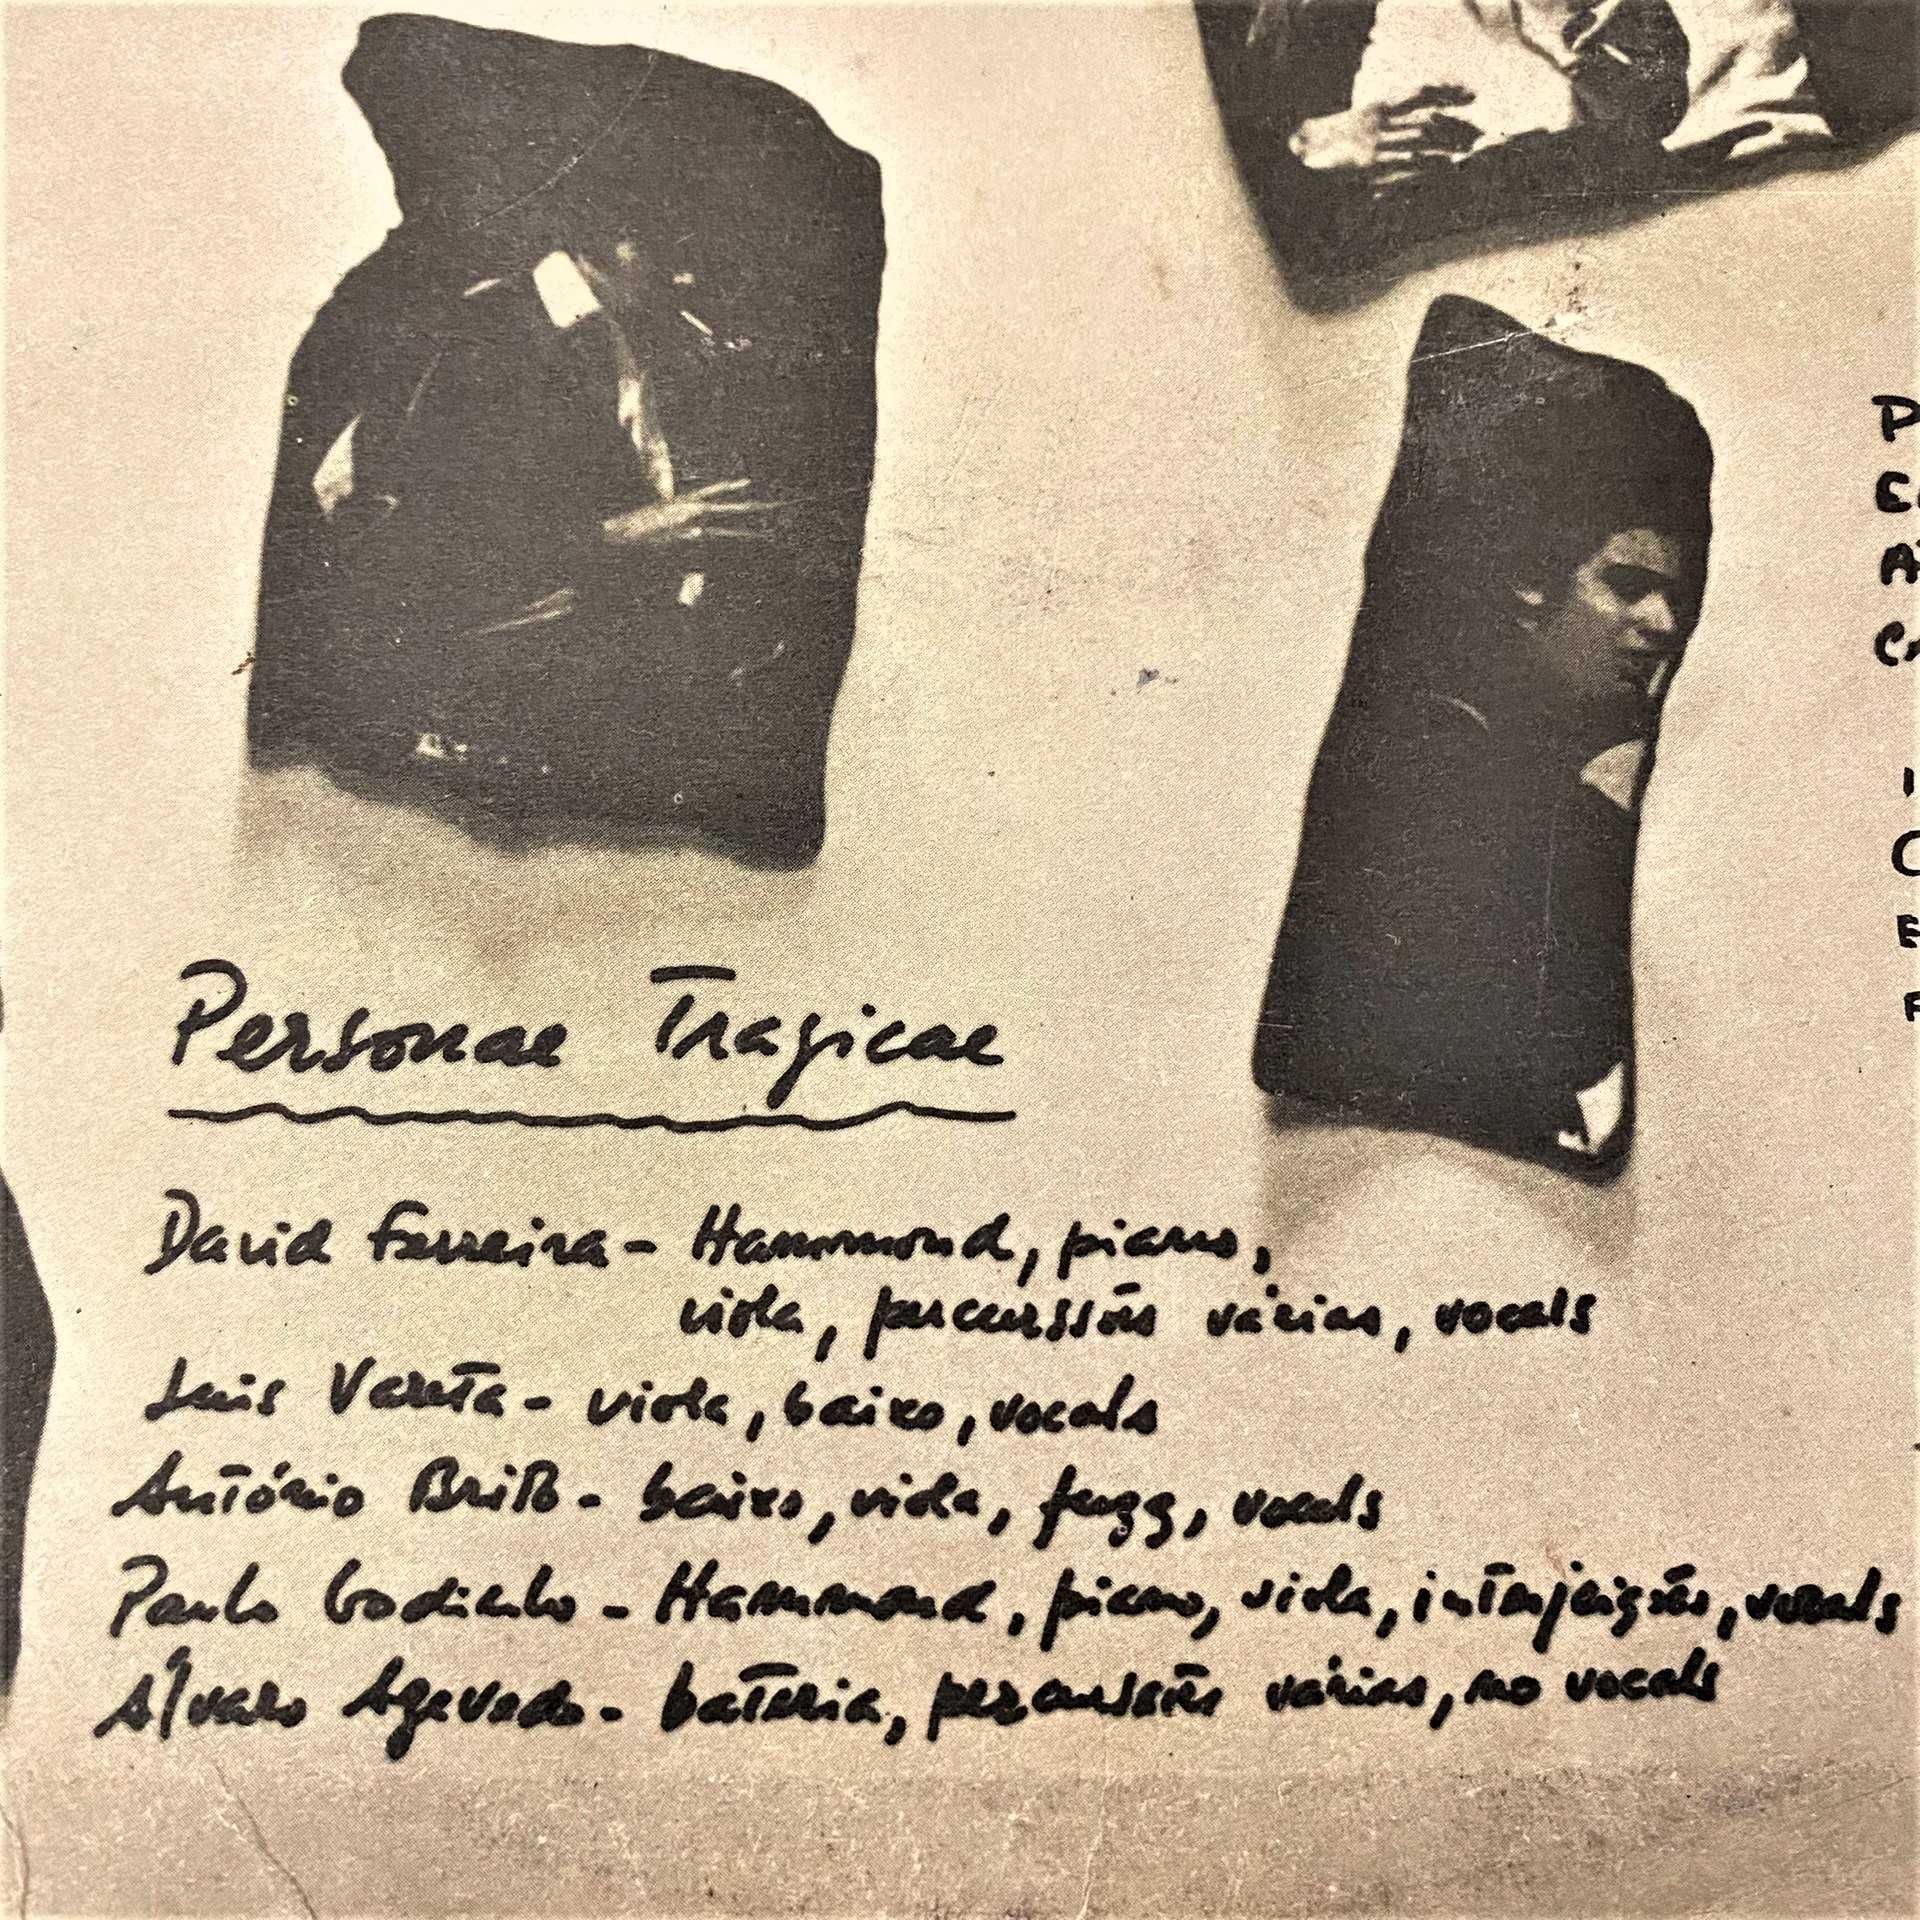 Personae Tragicae
David Ferreira - Hammond, piano,
viola, percussões várias, vocals
Luis Vareta - viola, baixo, vocals
António Brito - baixo, viola, fuzz, vocals
Paulo Godinho - Hammond, piano, viola, interjeições, vocals
Álvaro Azevedo - bateria, percussões várias, no vocals